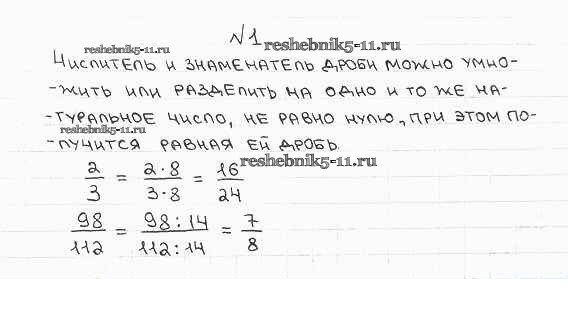 №1
reshebnik5-11.ru
reshebnik5-11.ru
Числитель и знаменатель дроби можно умно-
-жить или разделить на одно и то же на-
-туральное число, не равно нулю, при этом по-
reshebnik5-11.ru
-лучится равная ей дробь.
reshebnik5-11.ru
2/3 = 2·8/3·8 = 16/24
98/112 = 98:14/112:14 = 7/8